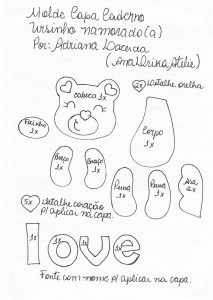 Molde Capa Caderno
Ursinho namorado(a)
Por: Adriana Lacerda
(Ana Drika Ateliê)
2x Detalhe orelha
cabeça 1x
Focinho
1x
Corpo
1x
Braço
1x
Braço
1x
Perna
1x
Perna
1x
Asa
2x
5x Detalhe coração
p/ aplicar na capa.
love
1x 1x 1x 1x
Fonte com nome p/ aplicar na capa.